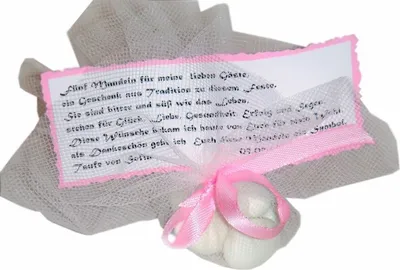 Fünf Mandeln für meine lieben Gäste,
ein Geschenk aus Tradition zu diesem Feste.
Sie sind bitter und süß wie das Leben,
stehen für Glück, Liebe, Gesundheit, Erfolg und Segen
Diese Wünsche bekam ich heute von Euch für mein
als Dankeschön gebe ich Euch diese Mandeln ein Symbol.
Taufe von Sofia